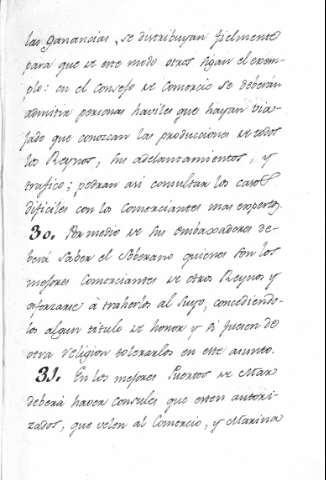 las ganancias, se distribuyan fielmente
para que de este modo otros sigan el exem-
plo: en el Consejo de Comercio se deberán
admitir personas haviles que hayan via-
jado que conozcan las producciones de todos
los Reynos, sus adelantamientos, y
trafico; podran asi consultar los casos
dificiles con los Comerciantes mas expertos.
30. Por medio de sus embaxadores de-
berá saber el Soberano quienes son los
mejores Comerciantes de otros Reynos y
esforzarse á traherlos al suyo, concediendo-
les algun titulo de honor y si fuesen de
otra religion tolerarlos en este asunto.
31. En los mejores Puertos de Mar
deberá haver consules que esten autori-
zados, que velen al Comercio, y Marina